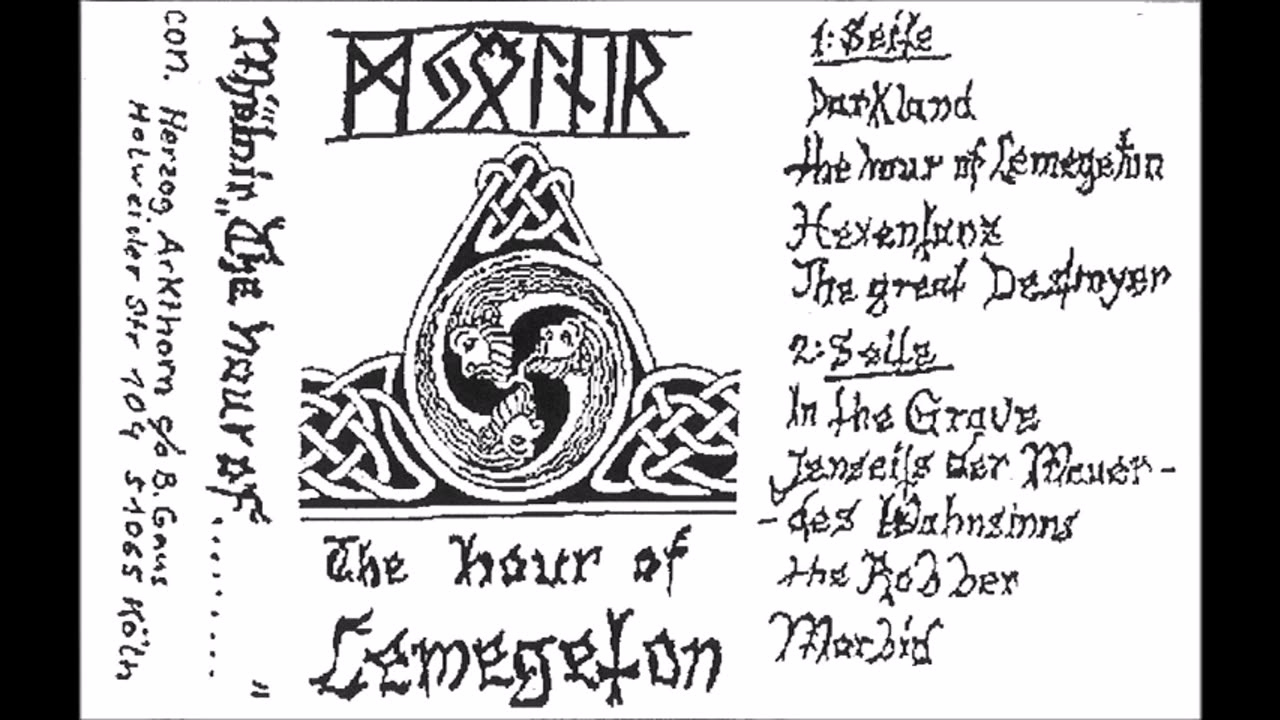 con. Herzog Arkthorn c/o B.
Holweider Str 104 51065 Köln
"Mjölnir" "The hour of ........"
ᛗᛃᛟᛚᚾᛁᚱ
The hour of
Lemegeton
1: Seite
Darkland
the hour of Lemegeton
Hexentanz
The great Destroyer
2: Seite
In the Grave
Jenseits der Mauer -
- des Wahnsinns
the Robber
Morbid